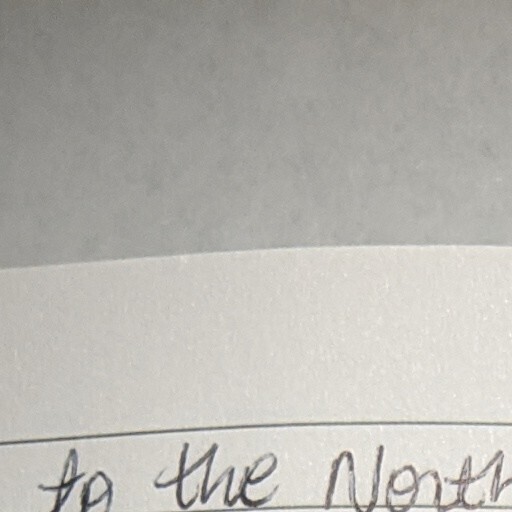 to the North